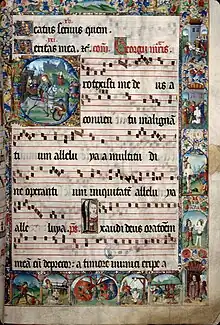 Beatus seruus quem.
Veritas mea. Georgij
Protexisti me de us a
conuen tu malignã
ti um allelu ya a multitu di
ne operanti um iniquitatem allelu ya
alle luya. ps. Exaudi deus orationem
meã cũ deprecor: a timore inimici eripe a